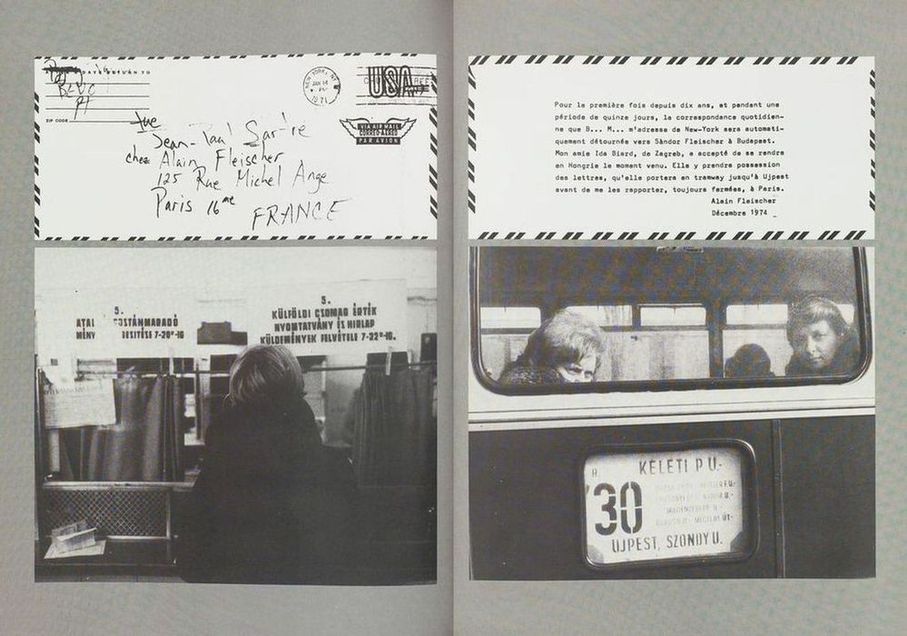 DAYS RETURN TO
ZIP CODE
NEW YORK, N.Y.
JAN 14
PM
1971
USA
VIA AIR MAIL
CORREO AEREO
PAR AVION
Jean-Paul Sartre
chez Alain Fleischer
125 Rue Michel Ange
Paris 16me
FRANCE
Pour la première fois depuis dix ans, et pendant une
période de quinze jours, la correspondance quotidien-
ne que B... M... m'adresse de New-York sera automati-
quement détournée vers Sándor Fleischer à Budapest.
Mon amie Ida Biard, de Zagreb, a accepté de se rendre
en Hongrie le moment venu. Elle y prendra possession
des lettres, qu'elle portera en tramway jusqu'à Ujpest
avant de me les rapporter, toujours fermées, à Paris.
Alain Fleischer
Décembre 1974
5.
POSTÁNMARADÓ
5.
KÜLFÖLDI CSOMAG ÉRTÉK
NYOMTATVÁNY ÉS HIRLAP
KÜLDEMÉNYEK FELVÉTELE 7-22°-IG.
KELETI P U.-
30
UJPEST, SZONDY U.